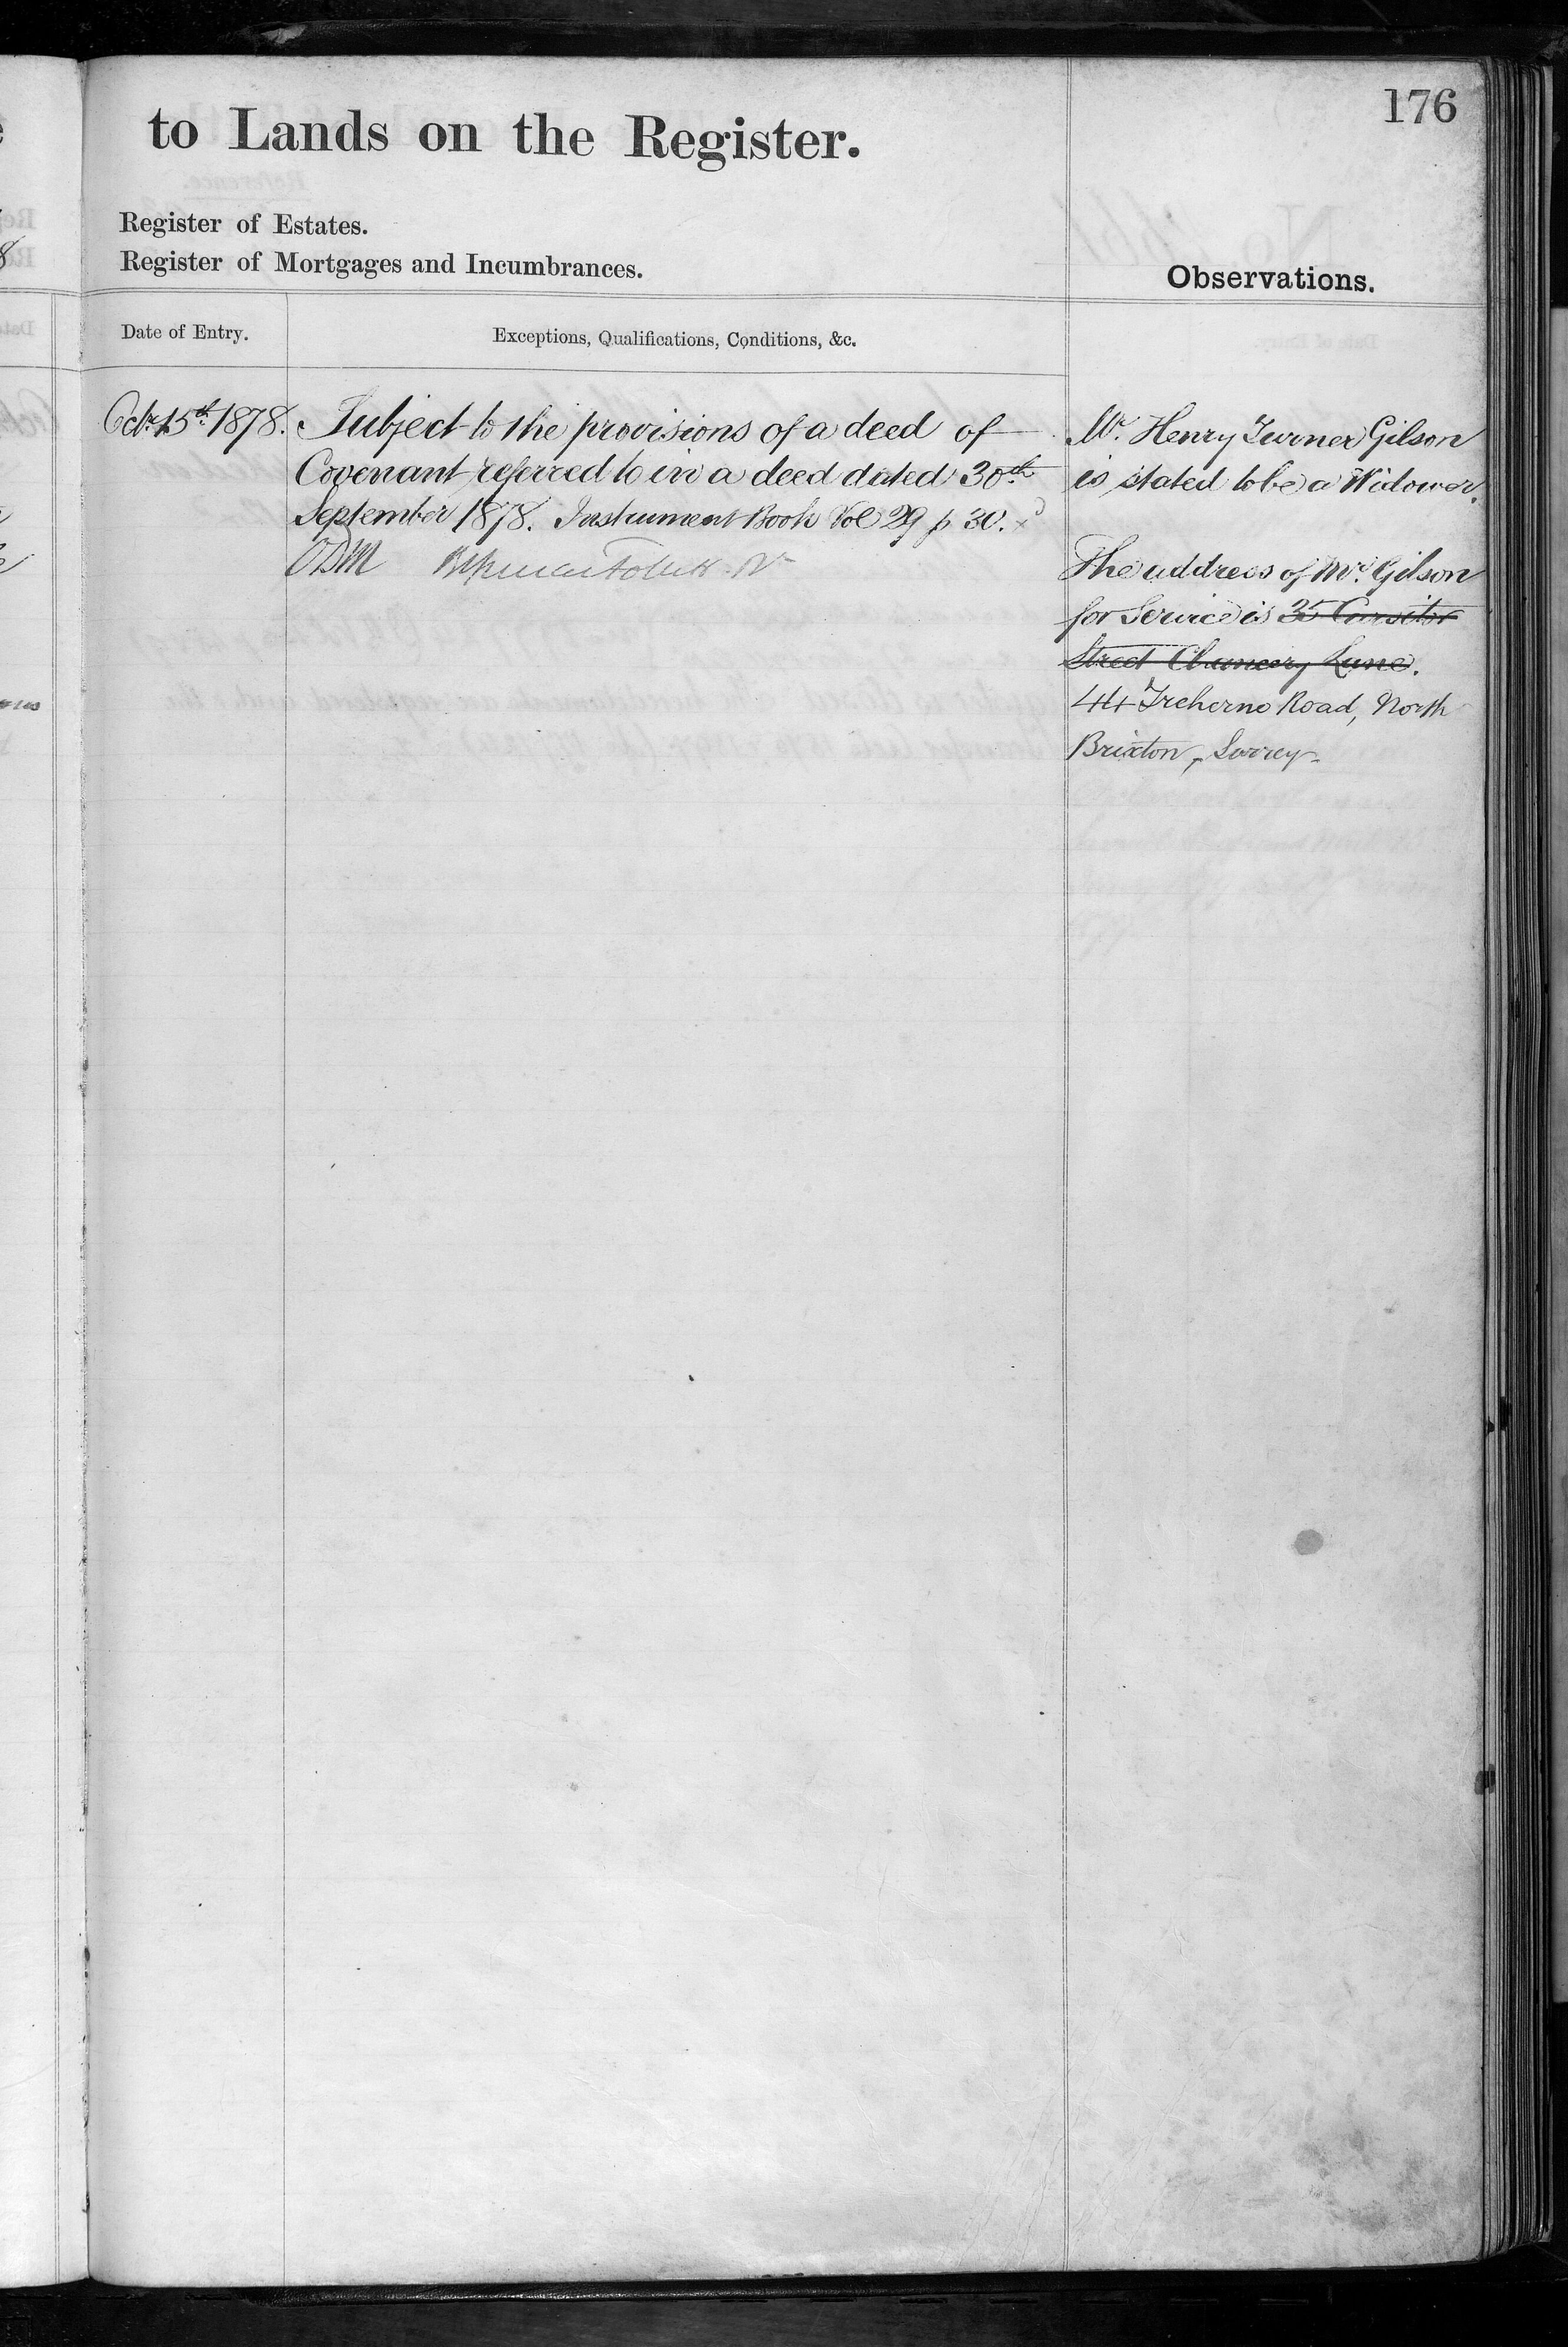 176
to Lands on the Register.
Register of Estates.
Register of Mortgages and Incumbrances.
Observations.
Date of Entry.
Exceptions, Qualifications, Conditions, &c.
Octr 15th 1878.
Subject to the provisions of a deed of
Covenant referred to in a deed dated 30th
September 1878. Instrument Book Vol 29 p 30.
Mr. Henry Turner Gilson
is stated to be a Widower.
The address of Mr. Gilson
for Service is 35 Cursitor
Street Chancery Lane.
44 Treherne Road, North
Brixton, Surrey